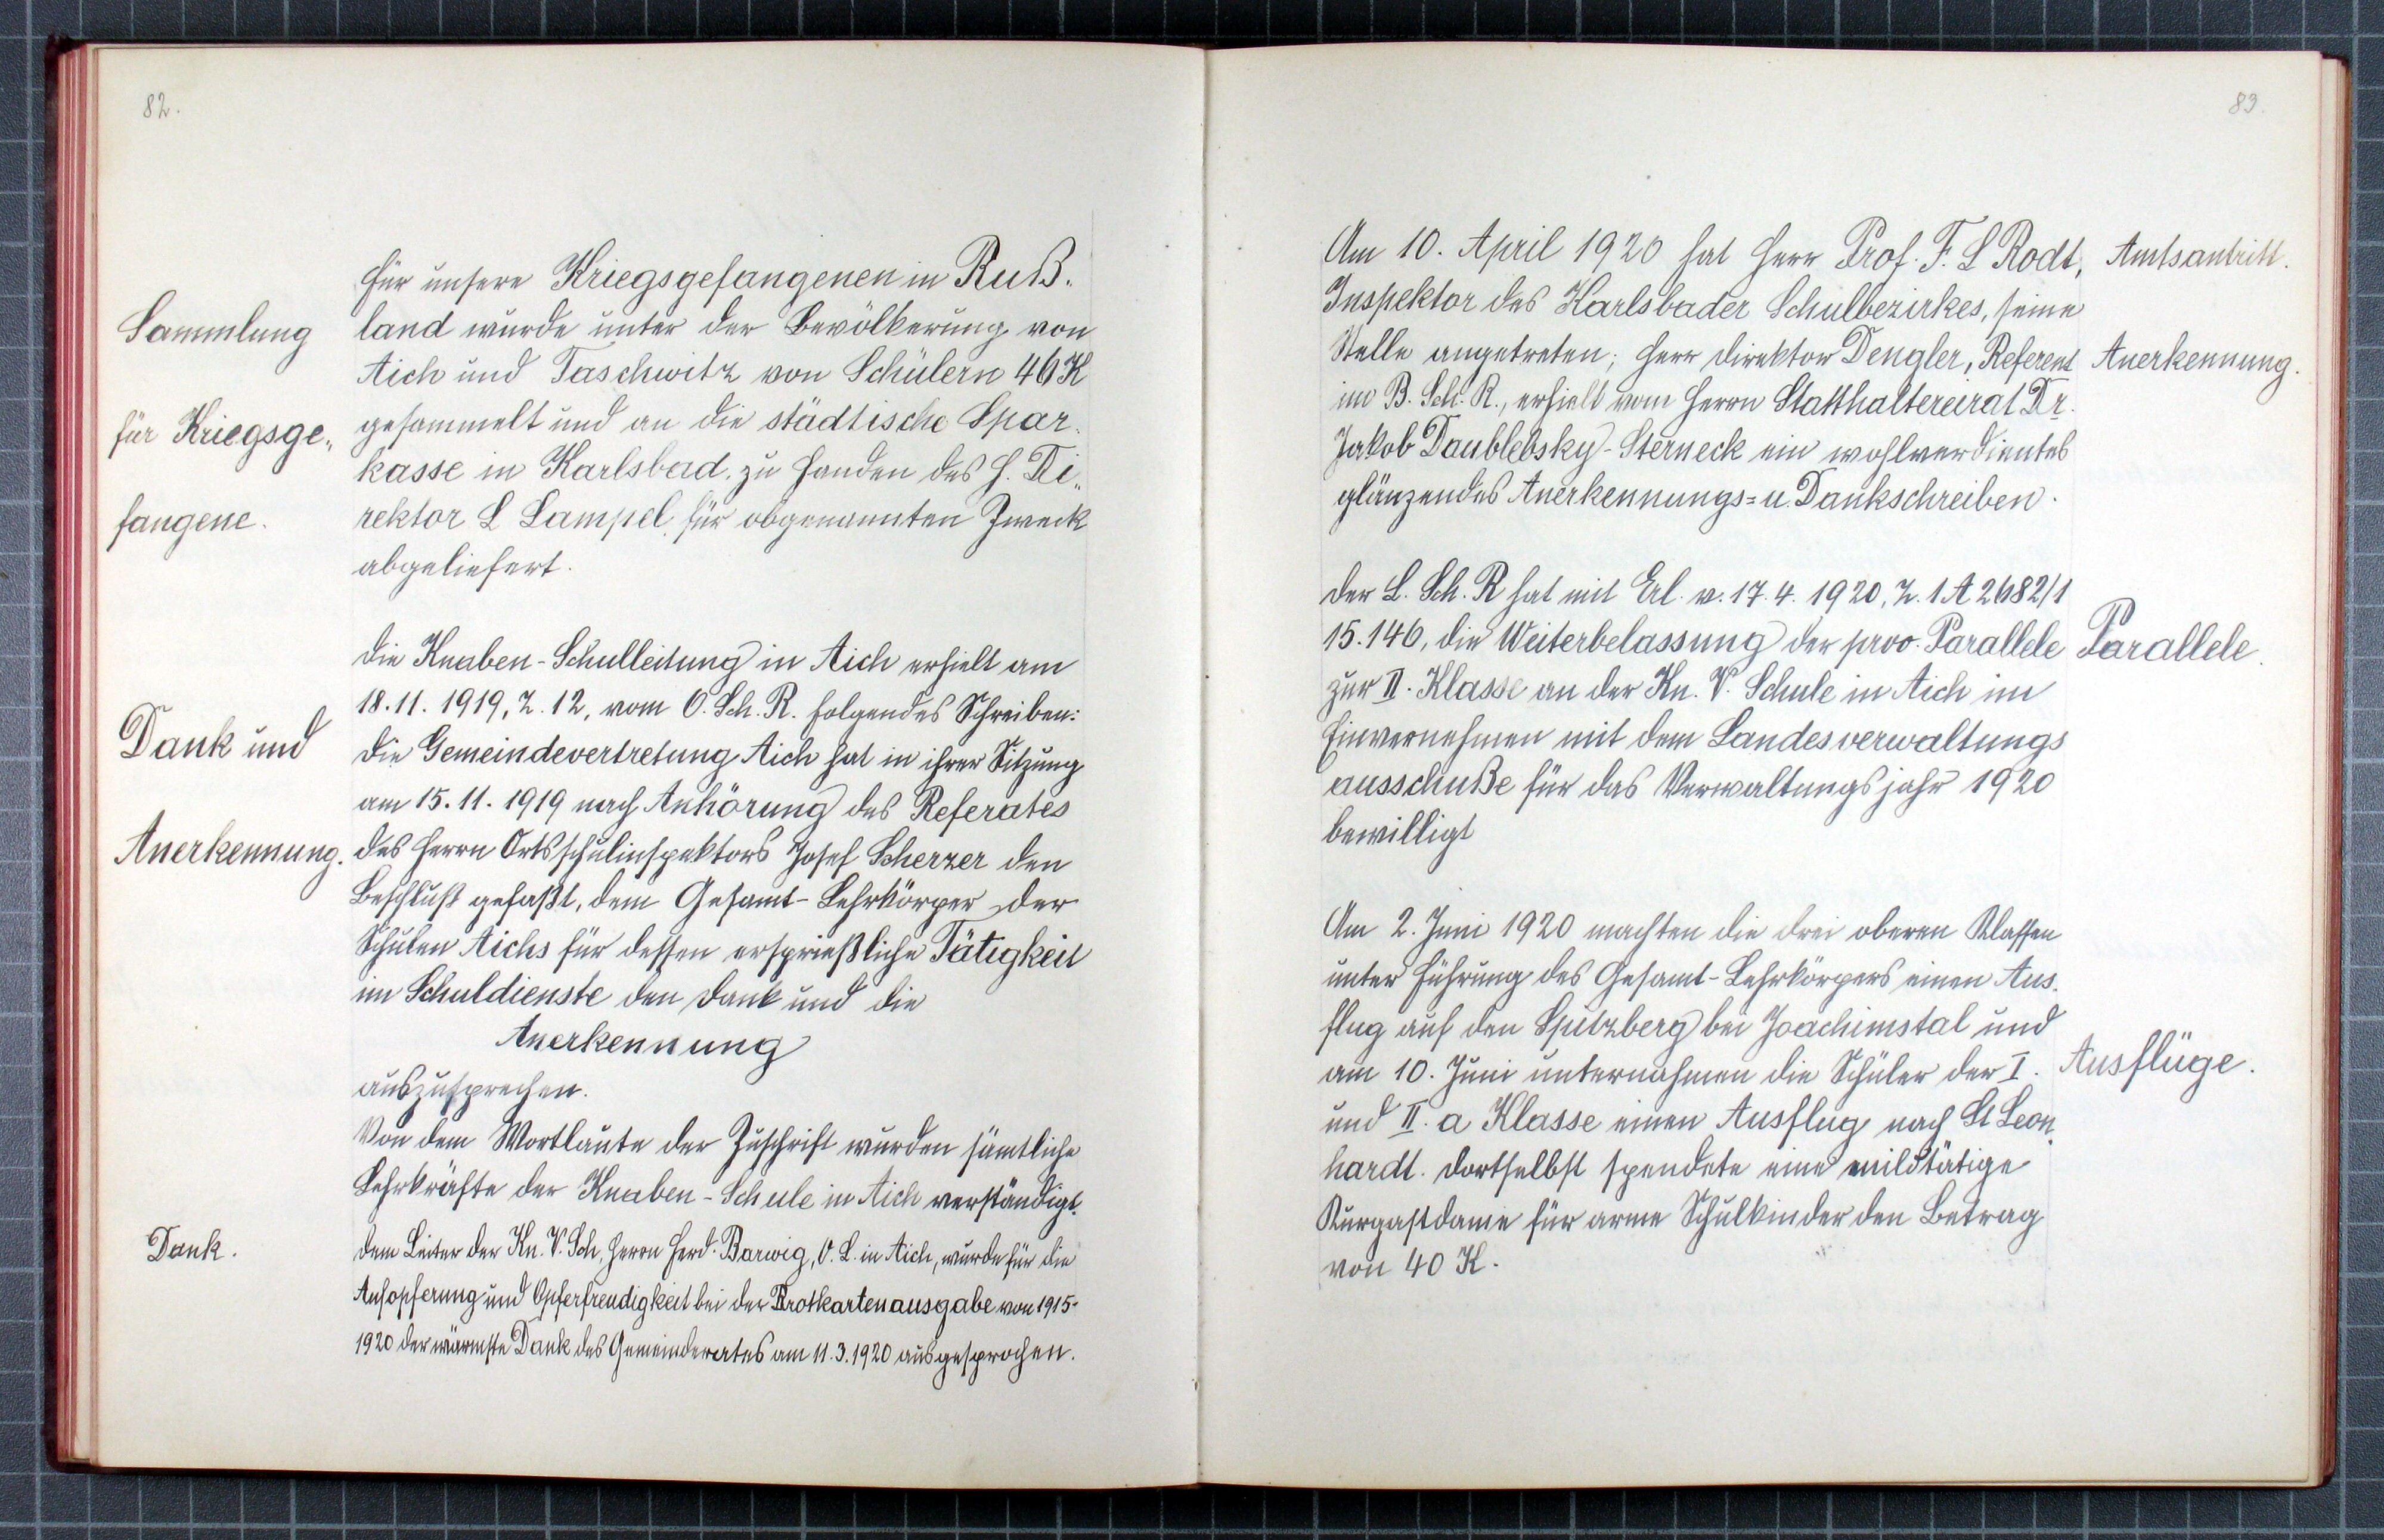 82.
Sammlung
für Kriegsge„
fangene.
für unsere Kriegsgefangenen in Ruß„
land wurde unter der Bevölkerung von
Aich und Taschwitz von Schülern 46 K
gesammelt und an die städtische Spar„
kasse in Karlsbad, zu Handen des H. Di„
rektor L Lampel, für obgenannten Zweck
abgeliefert.
Dank und
Anerkennung.
Die Knaben-Schulleitung in Aich erhielt am
18.11.1919, Z. 12, vom O. Sch. R. folgendes Schreiben:
Die Gemeindevertretung Aich hat in ihrer Sitzung
am 15.11.1919 nach Anhörung des Referates
des Herrn Ortsschulinspektors Josef Scherzer den
Beschluß gefaßt, dem Gesamt-Lehrkörper der
Schulen Aichs für dessen ersprießliche Tätigkeit
im Schuldienste den Dank und die
Anerkennung
auszusprechen.
Von dem Wortlaute der Zuschrift wurden sämtliche
Lehrkräfte der Knaben-Schule in Aich verständigt.
Dank.
Dem Leiter der Kn. V. Sch, Herrn Ferd. Barwig, O. L. in Aich, wurde für die
Aufopferung und Opferfreudigkeit bei der Brotkartenausgabe von 1915-
1920 der wärmste Dank des Gemeinderates am 11.3.1920 ausgesprochen.
83.
Am 10. April 1920 hat Herr Prof. F. L Rodt,
Inspektor des Karlsbader Schulbezirkes, seine
Stelle angetreten; Herr Direktor Dengler, Referent
im B. Sch. R., erhielt vom Herrn Statthaltereirat Dr.
Jakob Daublebsky-Sterneck ein wohlverdientes
glänzendes Anerkennungs= u. Dankschreiben.
Amtsantritt.
Anerkennung.
Der L. Sch. R hat mit Erl. v. 17.4.1920, Z. 1 A 2682/1
15.146, die Weiterbelassung der prov. Parallele
zur II. Klasse an der Kn. V. Schule in Aich im
Einvernehmen mit dem Landesverwaltungs
ausschuße für das Verwaltungsjahr 1920
bewilligt
Parallele.
Am 2. Juni 1920 machten die drei oberen Klassen
unter Führung des Gesamt-Lehrkörpers einen Aus„
flug auf den Spitzberg bei Joachimstal und
am 10. Juni unternahmen die Schüler der I.
und II. a Klasse einen Ausflug nach St Leon„
hardt. Dortselbst spendete eine mildtätige
Kurgastdame für arme Schulkinder den Betrag
von 40 K.
Ausflüge.